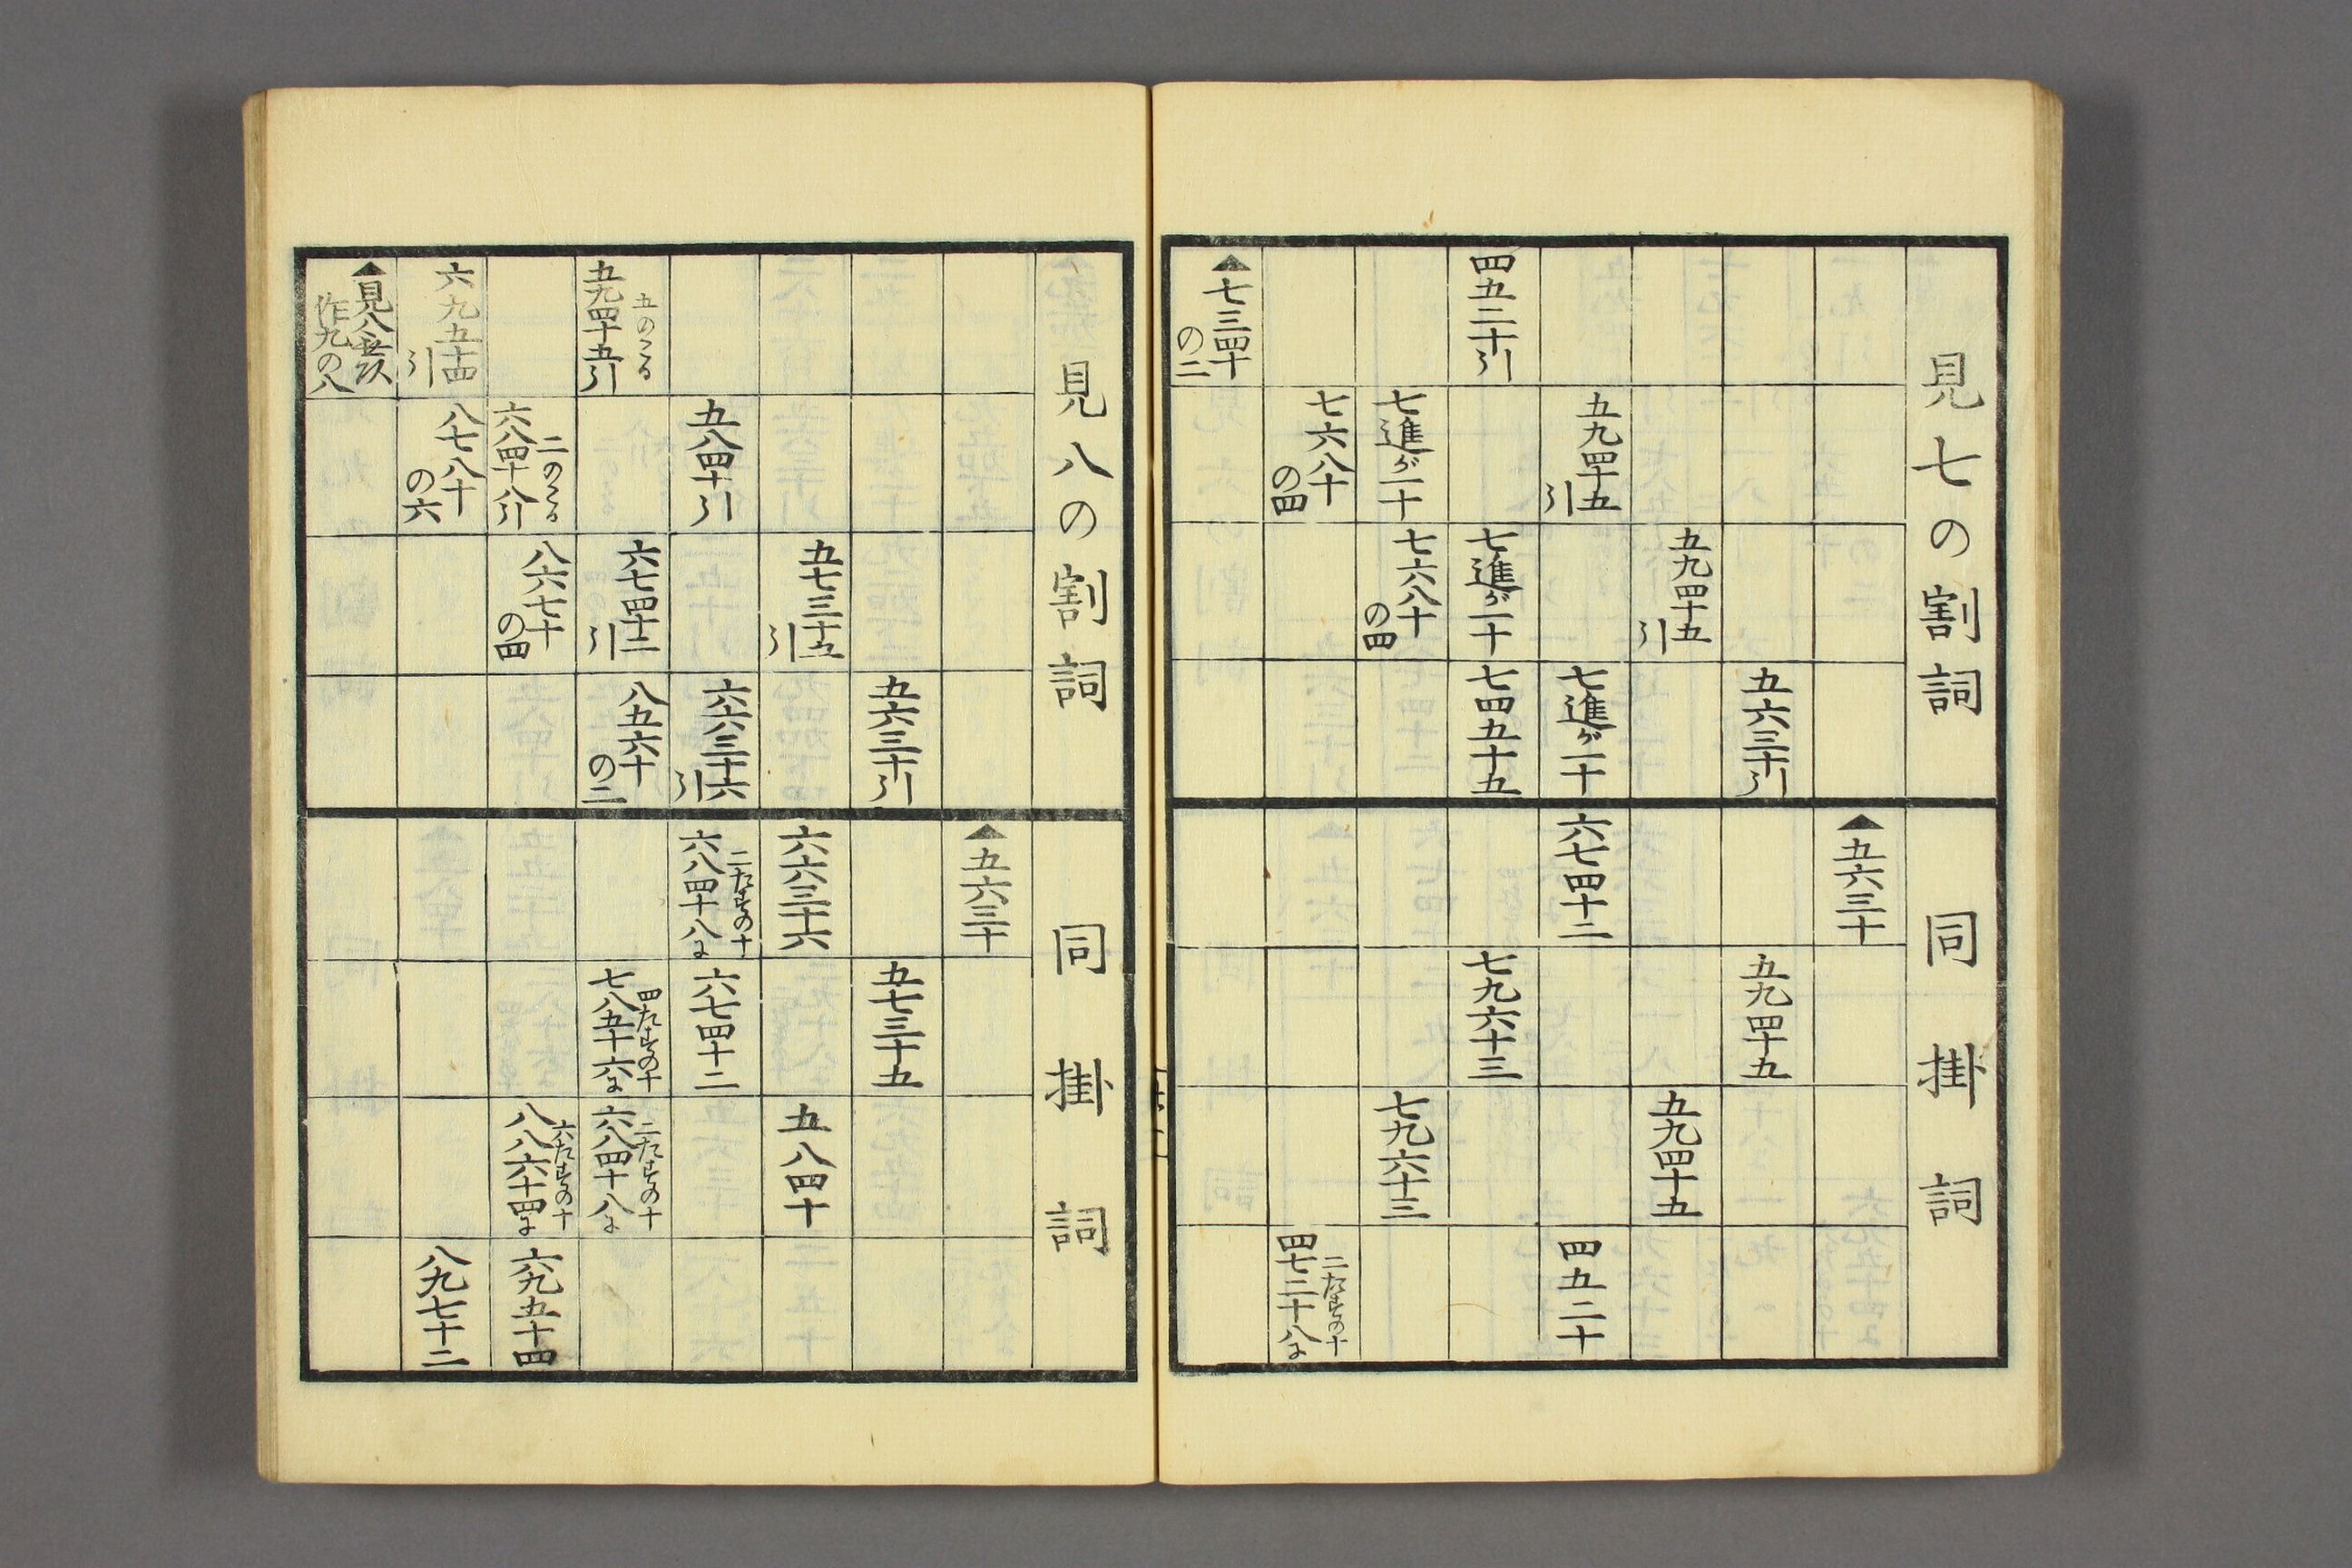 見七の割詞
五六三十引
五九四十五
引
五九四十五
引
七進ガ一十
四五二十引
七進ガ一十
七四五十五
七進ガ一十
七六八十
の四
七六八十
の四
▲七三四十
の二
同掛詞
▲五六三十
五九四十五
五九四十五
六七四十二
四五二十
七九六十三
七九六十三
二たすの十
四七二十八に
見八の割詞
五六三十引
五七三十五
引
五八四十引
六六三十六
引
五のこる
五九四十五引
六七四十二
引
八五六十
の二
二のこる
六八四十八引
八六七十
の四
六九五十四
引
八七八十
の六
▲見八無
作九の八
同掛詞
▲五六三十
五七三十五
六六三十六
五八四十
二たすの十
六八四十八に
六七四十二
四たすの十
七八五十六に
二たすの十
六八四十八に
六たすの十
八八六十四に
六九五十四
八九七十二